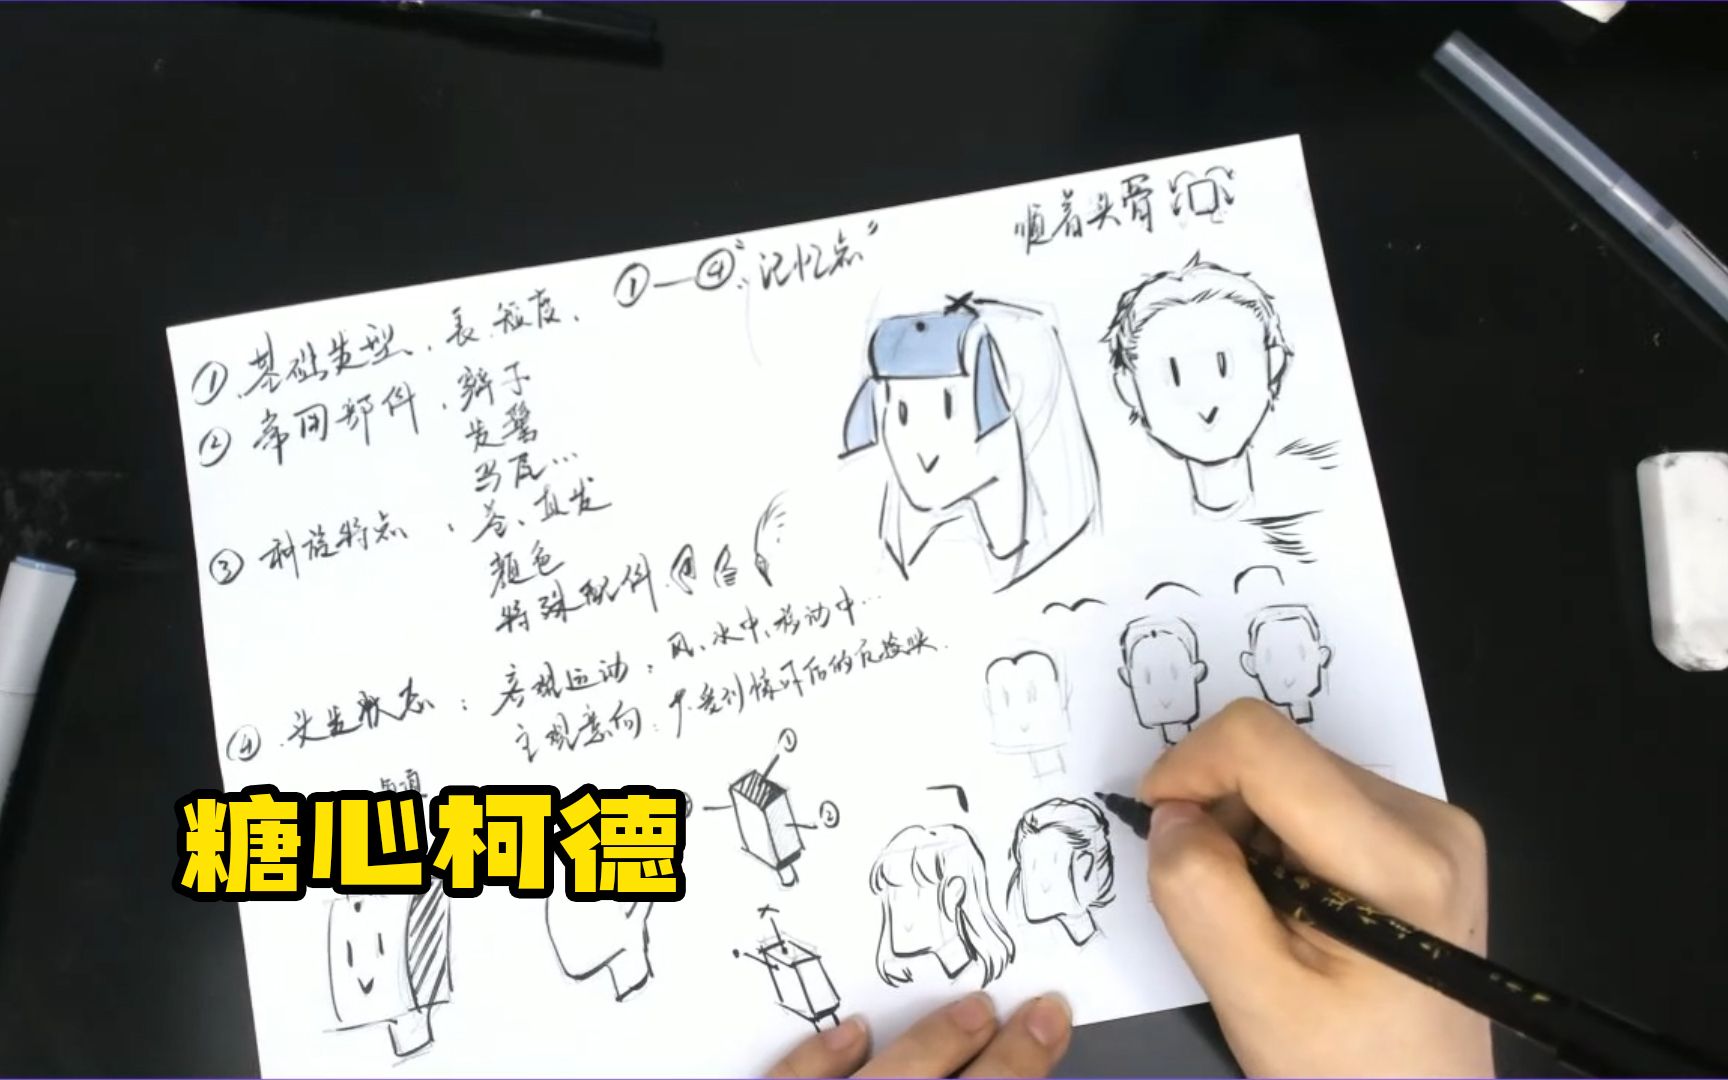 ①—④:“记忆点”
顺着头骨
①.基础发型、长、短度、
②常用部件、辫子
发髻
马尾…
③ 科发特点:卷、直发
颜色
特殊配件.
④.头发状态:客观运动:风、水中、移动中…
主观意向:
①
②
糖心柯德